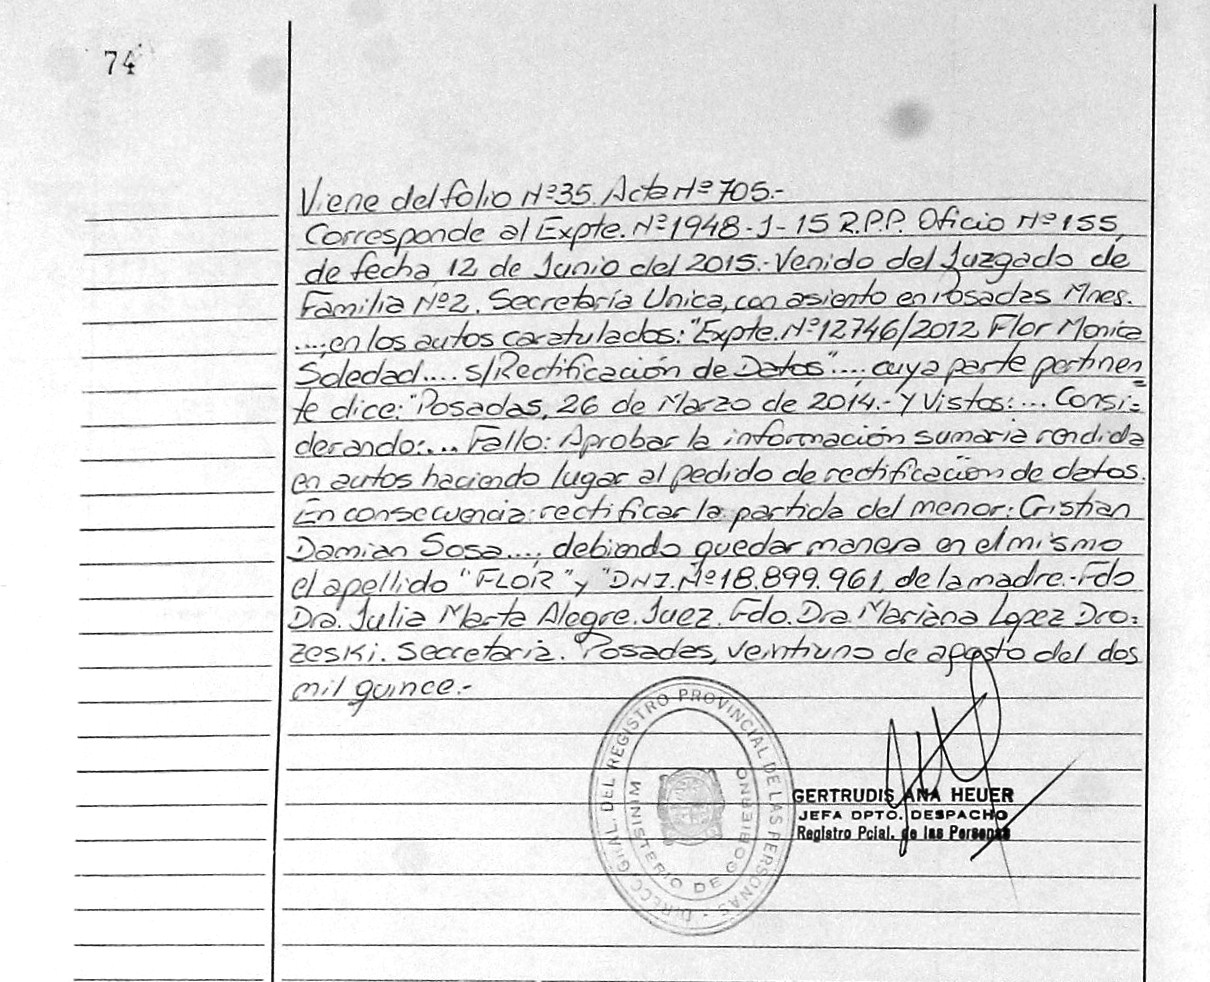 74
Viene del folio Nº35. Acta Nº 705.-
Corresponde al Expte. Nº1948-J-15 R.P.P. Oficio Nº155,
de fecha 12 de Junio del 2015.-Venido del Juzgado de
Familia Nº2. Secretaría Unica, con asiento en Posadas Mnes.
...., en los autos caratulados: "Expte. Nº12746/2012 Flor Monica
Soledad.... s/Rectificación de Datos"...., cuya parte pertinen=
te dice: "Posadas, 26 de Marzo de 2014.- Y Vistos:.... Consi=
derando:... Fallo: Aprobar la información sumaria rendida
en autos haciendo lugar al pedido de rectificación de datos.
En consecuencia: rectificar la partida del menor: Cristian
Damian Sosa...., debiendo quedar manera en el mismo
el apellido "FLOR" y "DNI. Nº18.899.961, de la madre.-Fdo
Dra. Julia Marta Alegre. Juez. Fdo. Dra Mariana Lopez Dro=
zeski. Secretaria. Posadas, veintiuno de agosto del dos
mil quince.-
DIRECC GRAL. DEL REGISTRO PROVINCIAL DE LAS PERSONAS -
MINISTERIO DE GOBIERNO
GERTRUDIS ANA HEUER
JEFA DPTO. DESPACHO
Registro Pcial. de las Personas